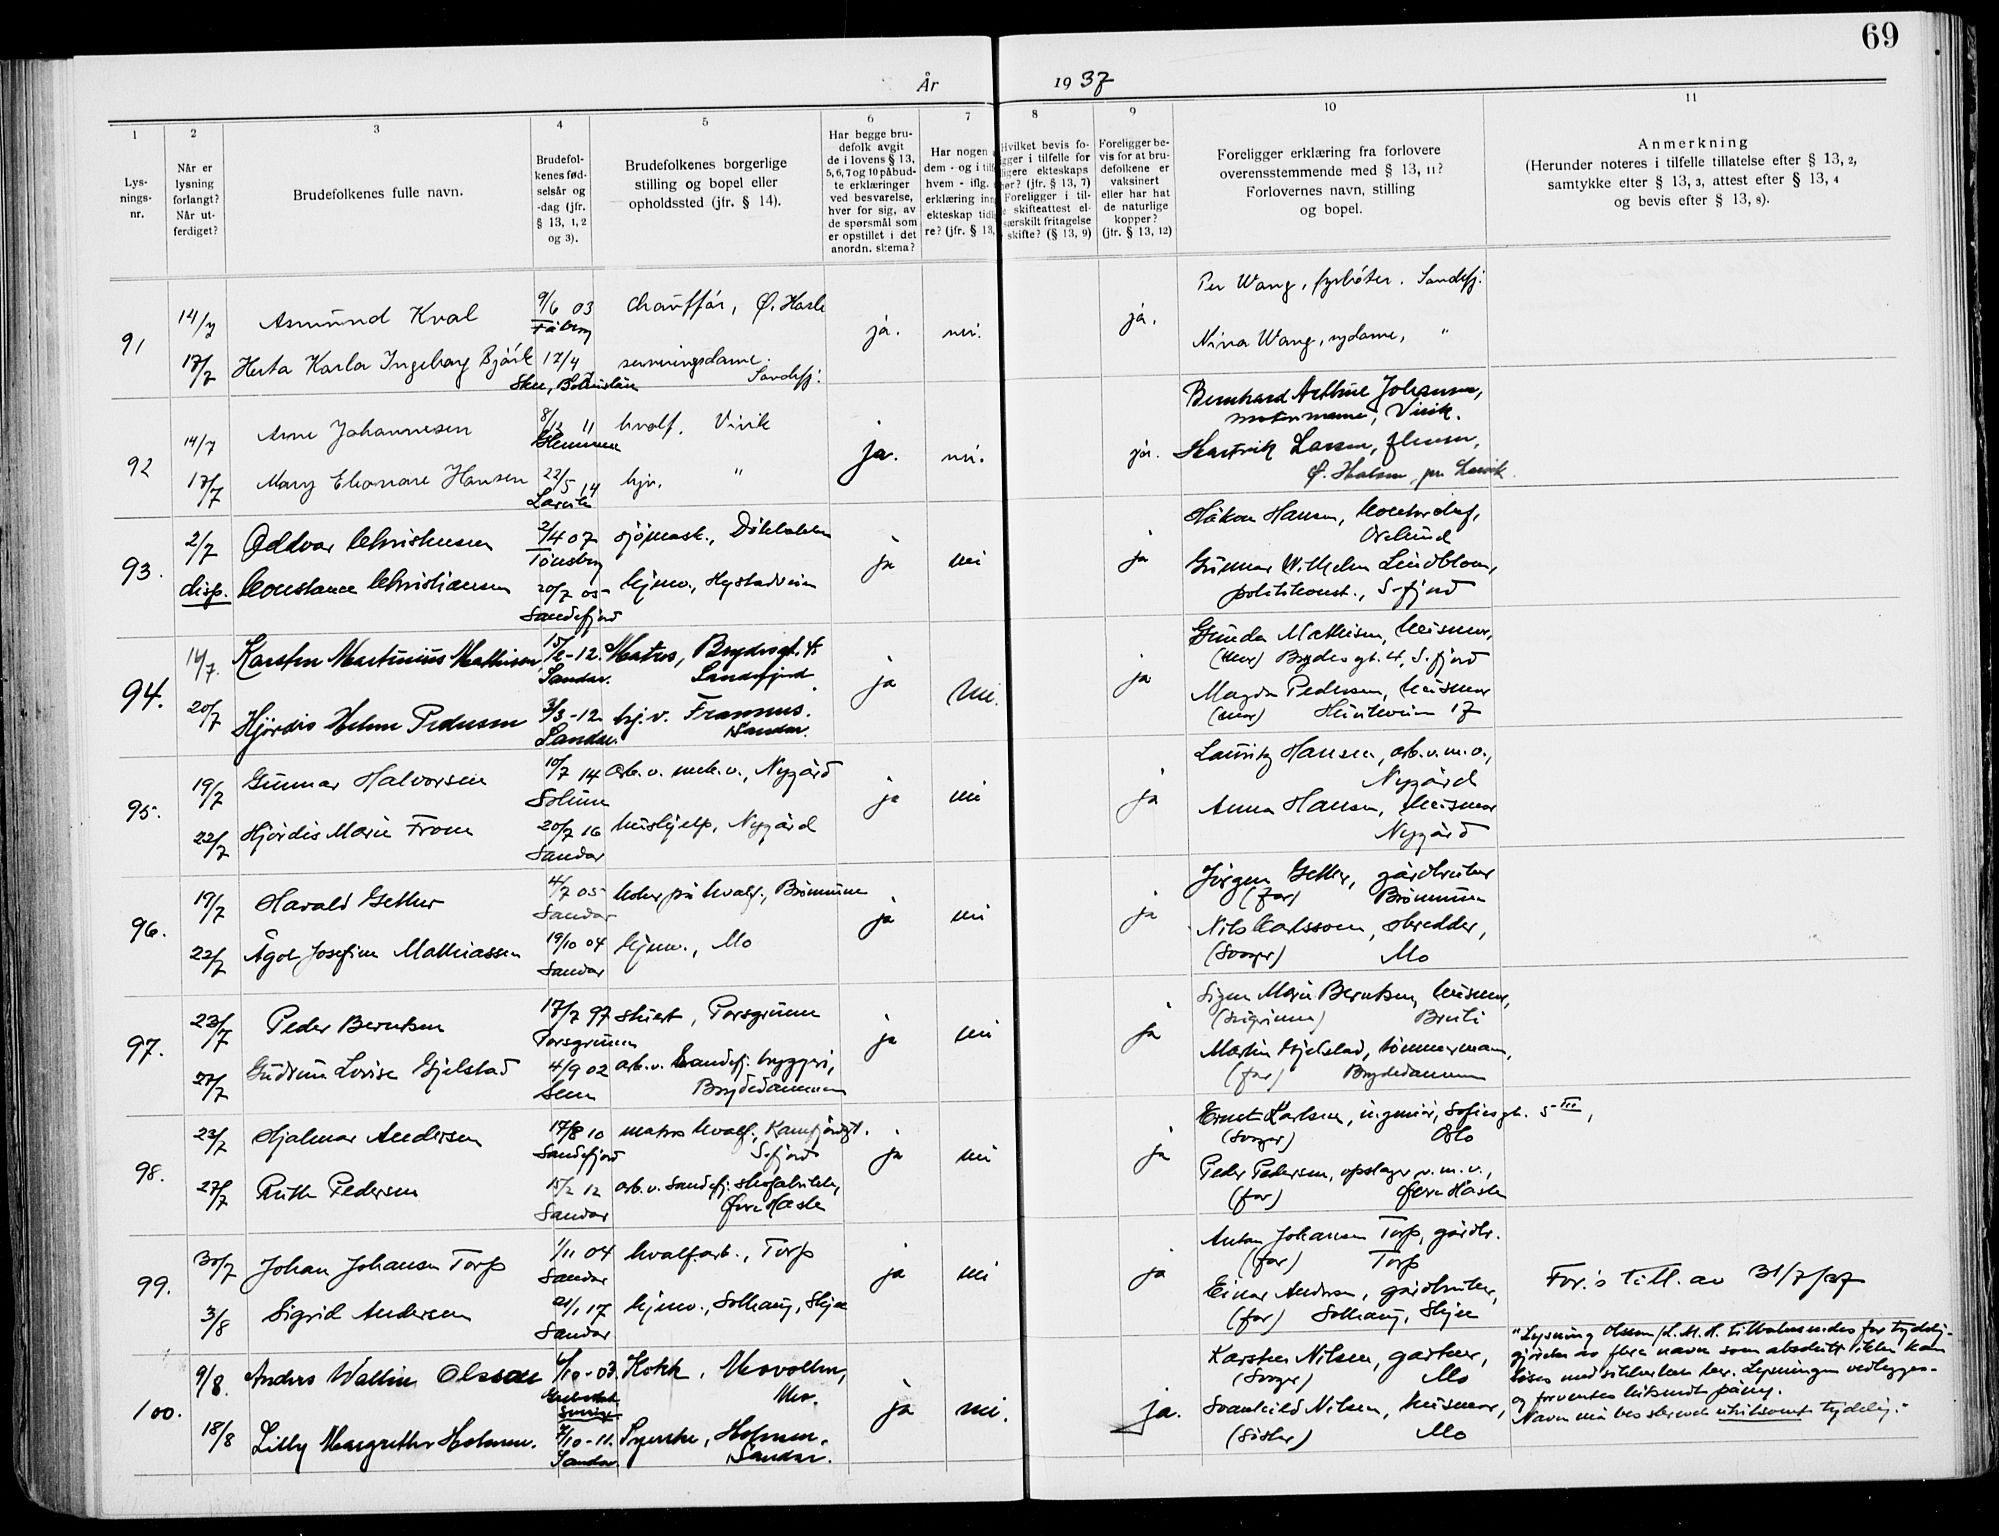 69
År 1937
1 2 3 4 5 6 7 8 9 10 11
Lys-
nings-
nr.
Når er
lysning
forlangt?
Når ut-
ferdiget?
Brudefolkenes fulle navn.
Brudefol-
kenes fød-
selsår og
-dag (jfr.
§ 13, 1, 2
og 3).
Brudefolkenes borgerlige
stilling og bopel eller
opholdssted (jfr. § 14).
Har begge bru-
defolk avgit
de i lovens § 13,
5, 6, 7 og 10 påbud-
te erklæringer
ved besvarelse,
hver for sig, av
de spørsmål som
er opstillet i det
anordn. skema?
Har nogen
dem - og i tilf
hvem - iflg.
erklæring inn
ekteskap tidl
re? (jfr. § 13,
Hvilket bevis fo-
gger i tilfelle for
ligere ekteskaps
hør? (jfr. § 13, 7)
Foreligger i til-
e skifteattest el-
særskilt fritagelse
skifte? (§ 13, 9)
Foreligger be-
vis for at bru-
defolkene er
vaksinert
eller har hat
de naturlige
kopper?
(jfr. § 13, 12)
Foreligger erklæring fra forlovere
overensstemmende med § 13, 11?
Forlovernes navn, stilling
og bopel.
Anmerkning
(Herunder noteres i tilfelle tillatelse efter § 13, 2,
samtykke efter § 13, 3, attest efter § 13, 4
og bevis efter § 13, 8).
91 14/7 Asmund Kval 9/6 03 chauffør, Ø. Hasle ja. nei. ja. Per Wang, fyrbøter. Sandefj.
Fåberg
17/7 Herta Karla Ingeborg Björk 17/4 serveringsdame. Sandefj. Nina Wang, sydame, "
Skee, Bohuslän
92 14/7 Arne Johannesen 8/12 11 hvalf. Virik ja. nei. ja. Bernhard Arthur Johansen,
Virik.
17/7 Mary Eleonare Hansen 22/5 14 hjv. " Hartvik Larsen,
Larvik Ø. Halsen pr. Larvik.
93. 2/7 Oddvar Christensen 2/4 07 sjømask., ja nei ja Håkon Hansen,
Tønsberg
disp. Constance Christiansen 20/7 05 hjemv., Hystadveien Gunnar Wilhelm Lindblom,
Sandefjord politikonst., S.fjord
94. 14/7. Karsten Martinius Mathisen 15/12-12. Matros, Brydesgt. 4 ja nei. ja Gunda Mathisen, husmor,
Sandar. Sandefjord (mor) Brydes gt. 4, S.fjord
20/7 Hjørdis Helene Pedersen 3/3-12 hj.v. Framnes. Magda Pedersen, husmor
Sandar. Sandar. (mor) 17
95. 19/7 Gunnar Halvorsen 10/7 14 arb. v. mek. v., Nygård ja nei ja Lauritz Hansen, arb. v. m. v.,
Solum Nygård
22/7 Hjørdis Marie From 20/7 16 hushjelp, Nygård Anna Hansen, husmor
Sandar Nygård
96. 19/7 Harald Gether 4/7 05 koker på hvalf., Brønnum ja nei ja Jørgen Gether, gårdbruker
Sandar (far) Brønnum
22/7 Ågot Josefine Mathiassen 19/10 04 hjemv., Mo Nils Carlsson, skredder,
Sandar (Svoger) Mo
97. 23/7 Peder Berntsen 17/7 97 stuert, Porsgrunn ja nei ja Signe Marie Berntsen, husmor,
Porsgrunn
27/7 Gudrun Lovise Gjelstad 4/9 02 arb. v. Sandefj. bryggeri, Martin Gjelstad, tømmermann,
Sem Brydedammen (far) Brydedammen
98. 23/7 Hjalmar Andersen 17/8 10 matros hvalf., Kamfjordgt. ja nei ja Ernst Karlsen, ingeniør, Sofiesgt. 5 III,
Sandefjord S.fjord (Svoger) Oslo
27/7 Ruth Pedersen 15/2 12 arb. v. Sandefj. skofabrikk, Peder Pedersen, opslager v. m. v.,
Sandar Øvre Hasle (far) Øvre Hasle
99. 30/7 Johan Johansen Torp 1/11 04 hvalfarb., Torp ja nei ja Anton Johansen Torp, gårdbr.
Sandar (far) Torp
3/8 Sigrid Andersen 21/1 17 hjemv., Solhaug, Skjee Einar Andersen, gårdbruker,
Sandar (far) Solhaug, Skjee
For.'s till. av 31/7/37
100. 9/8. Anders Wallin Olsson 6/10-03. Kokk, Movollen, ja nei. ja. Karsten Nilsen, gartner,
Mo. (Svoger) Mo
Sverige
18/8 Lilly Margrethe Holmen. 7/10-11. Syerske, Holmen, Svanhild Nilsen, husmor,
Sandar. Sandar. (Søster) Mo
"Lysning Olsson/L. M. H. tilbakesendes for tydelig-
gjørelse av flere navn som absolutt ikke kan
leses med sikkerhet her. Lysningen vedlegges
og forventes tilsendt påny.
Navn må bes skrevet utvilsomt tydelig."